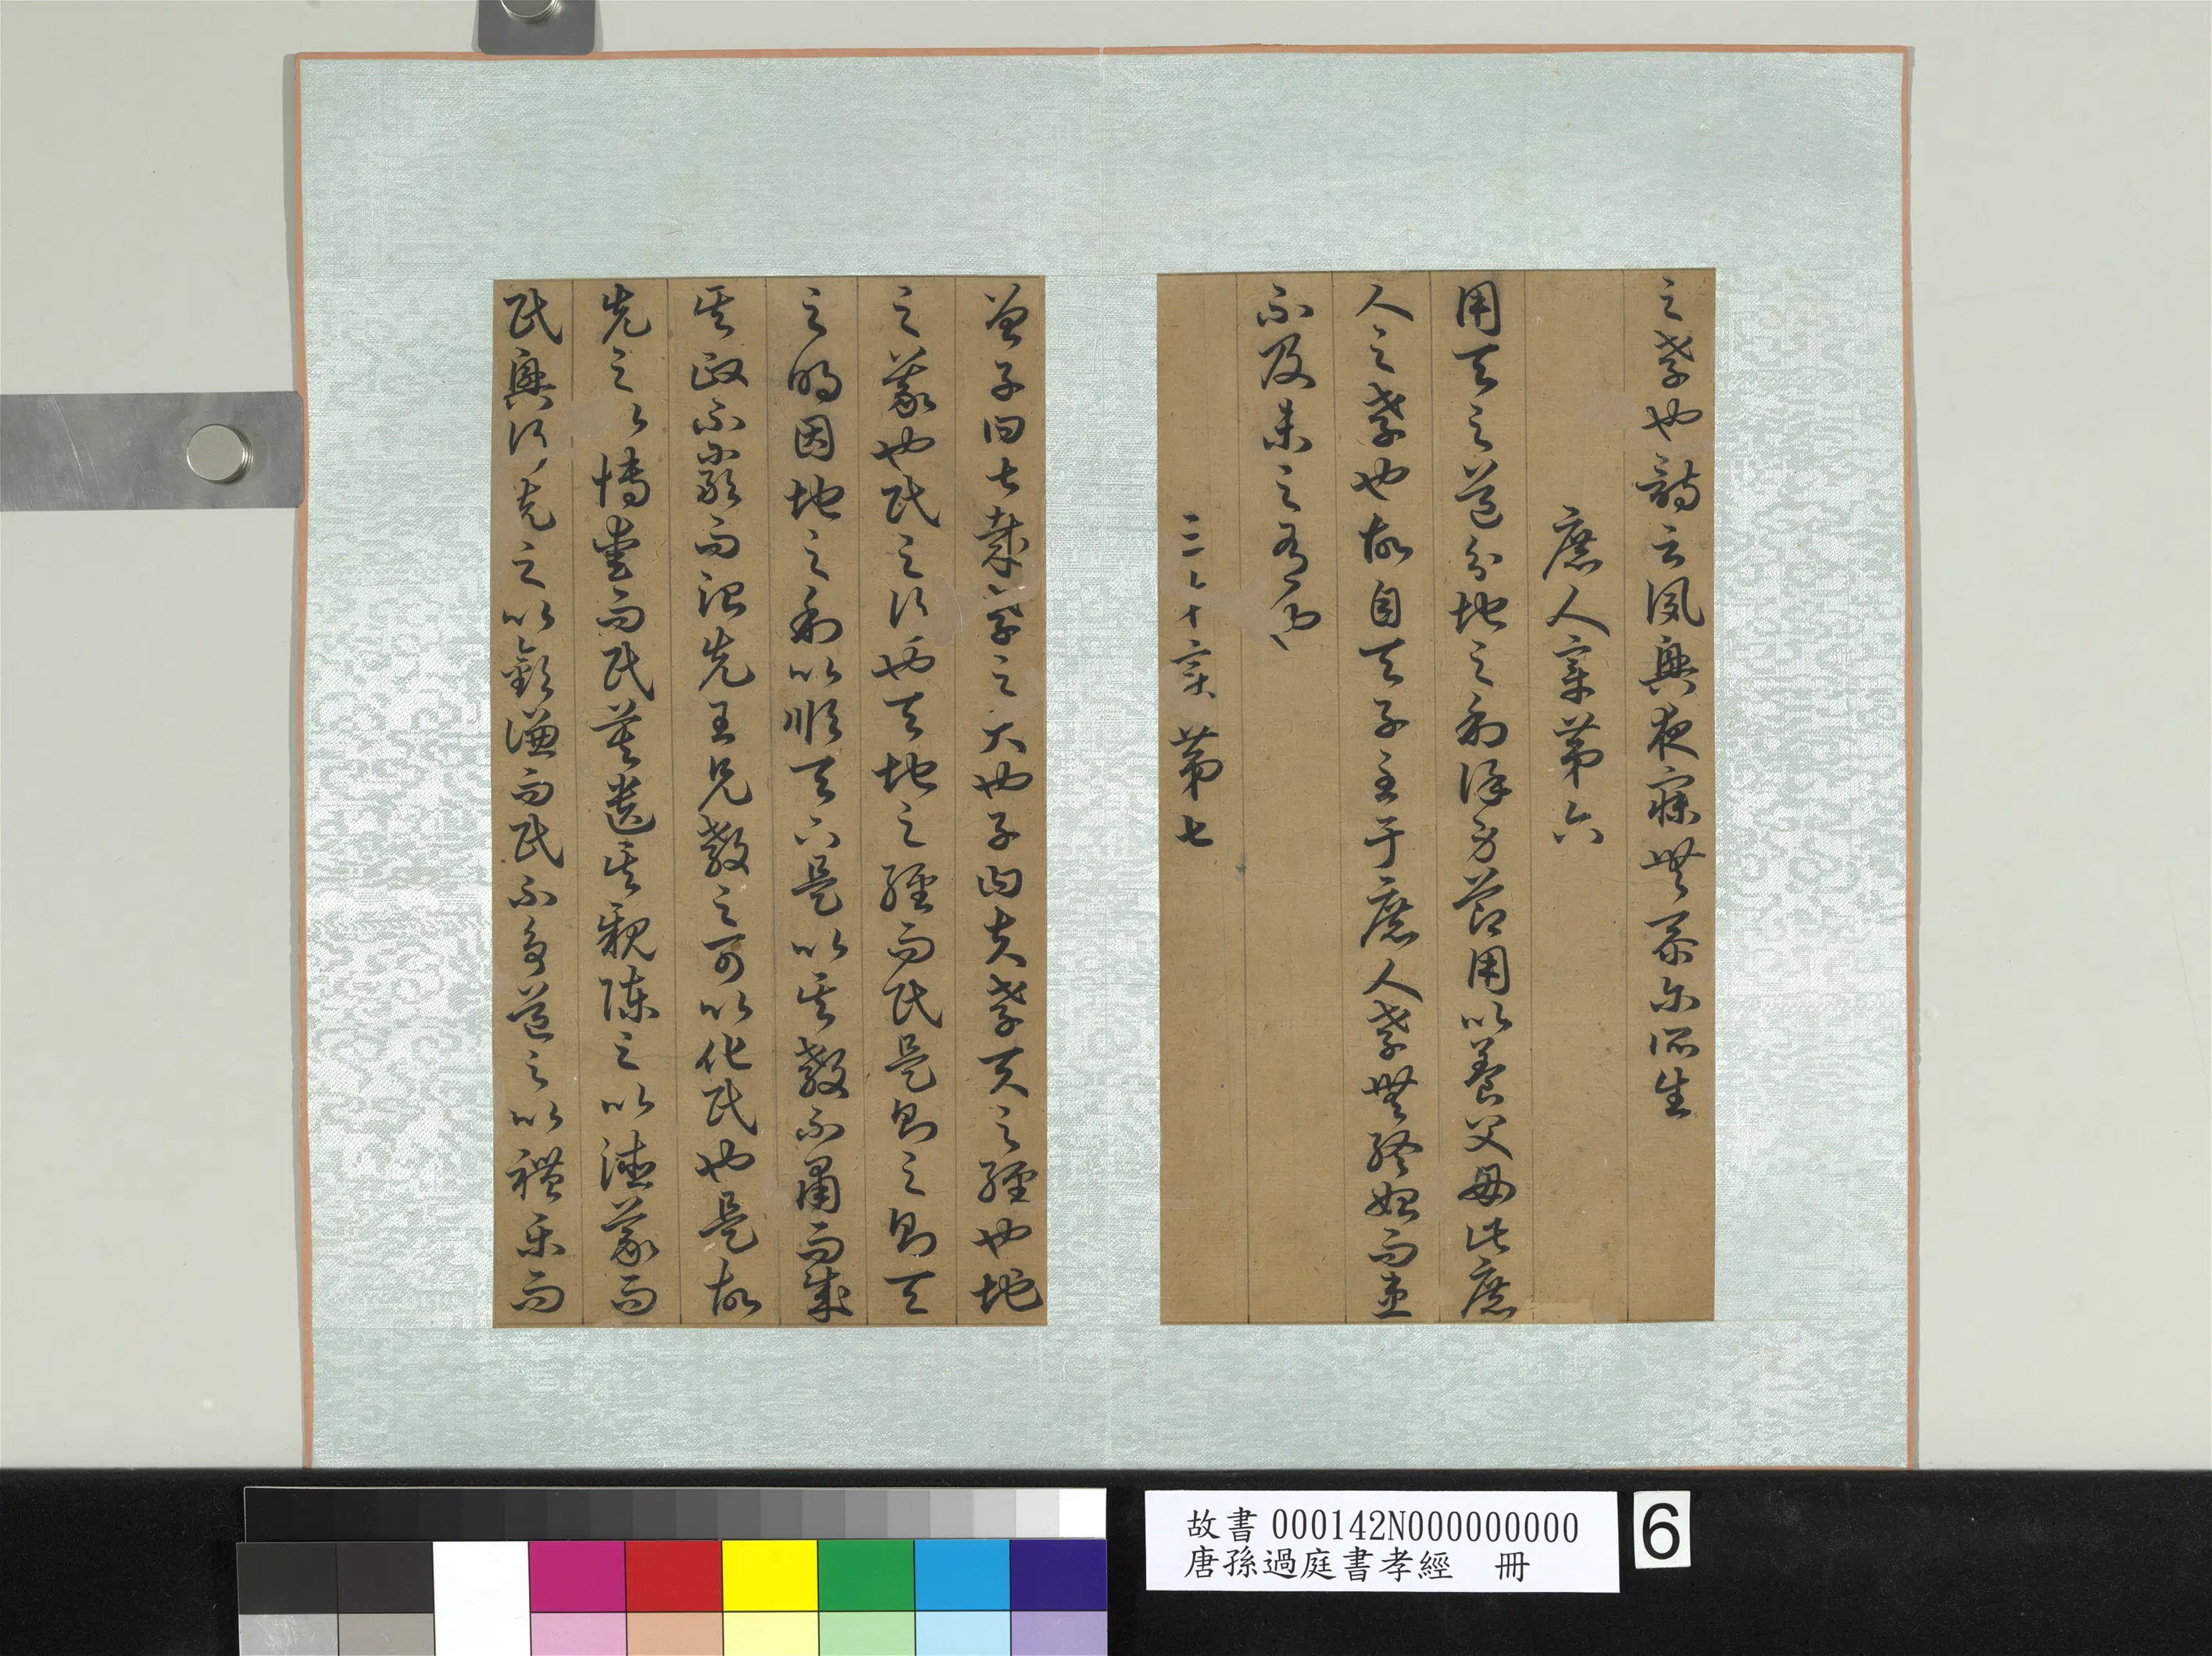 之孝也詩云夙興夜寐無忝尒所生
庶人章第六
用天之道分地之利謹身節用以養父母此庶
人之孝也故自天子至于庶人孝無終始而患
不及者未之有也
三才章第七
曾子曰甚哉孝之大也子曰夫孝天之經也地
之義也民之行也天地之經而民是則之則天
之明因地之利以順天下是以其教不肅而成
其政不嚴而治先王見教之可以化民也是故
先之以博愛而民莫遺其親陳之以德義而
民興行先之以敬讓而民不爭道之以禮樂而
故書 000142N000000000
唐孫過庭書孝經 冊
6